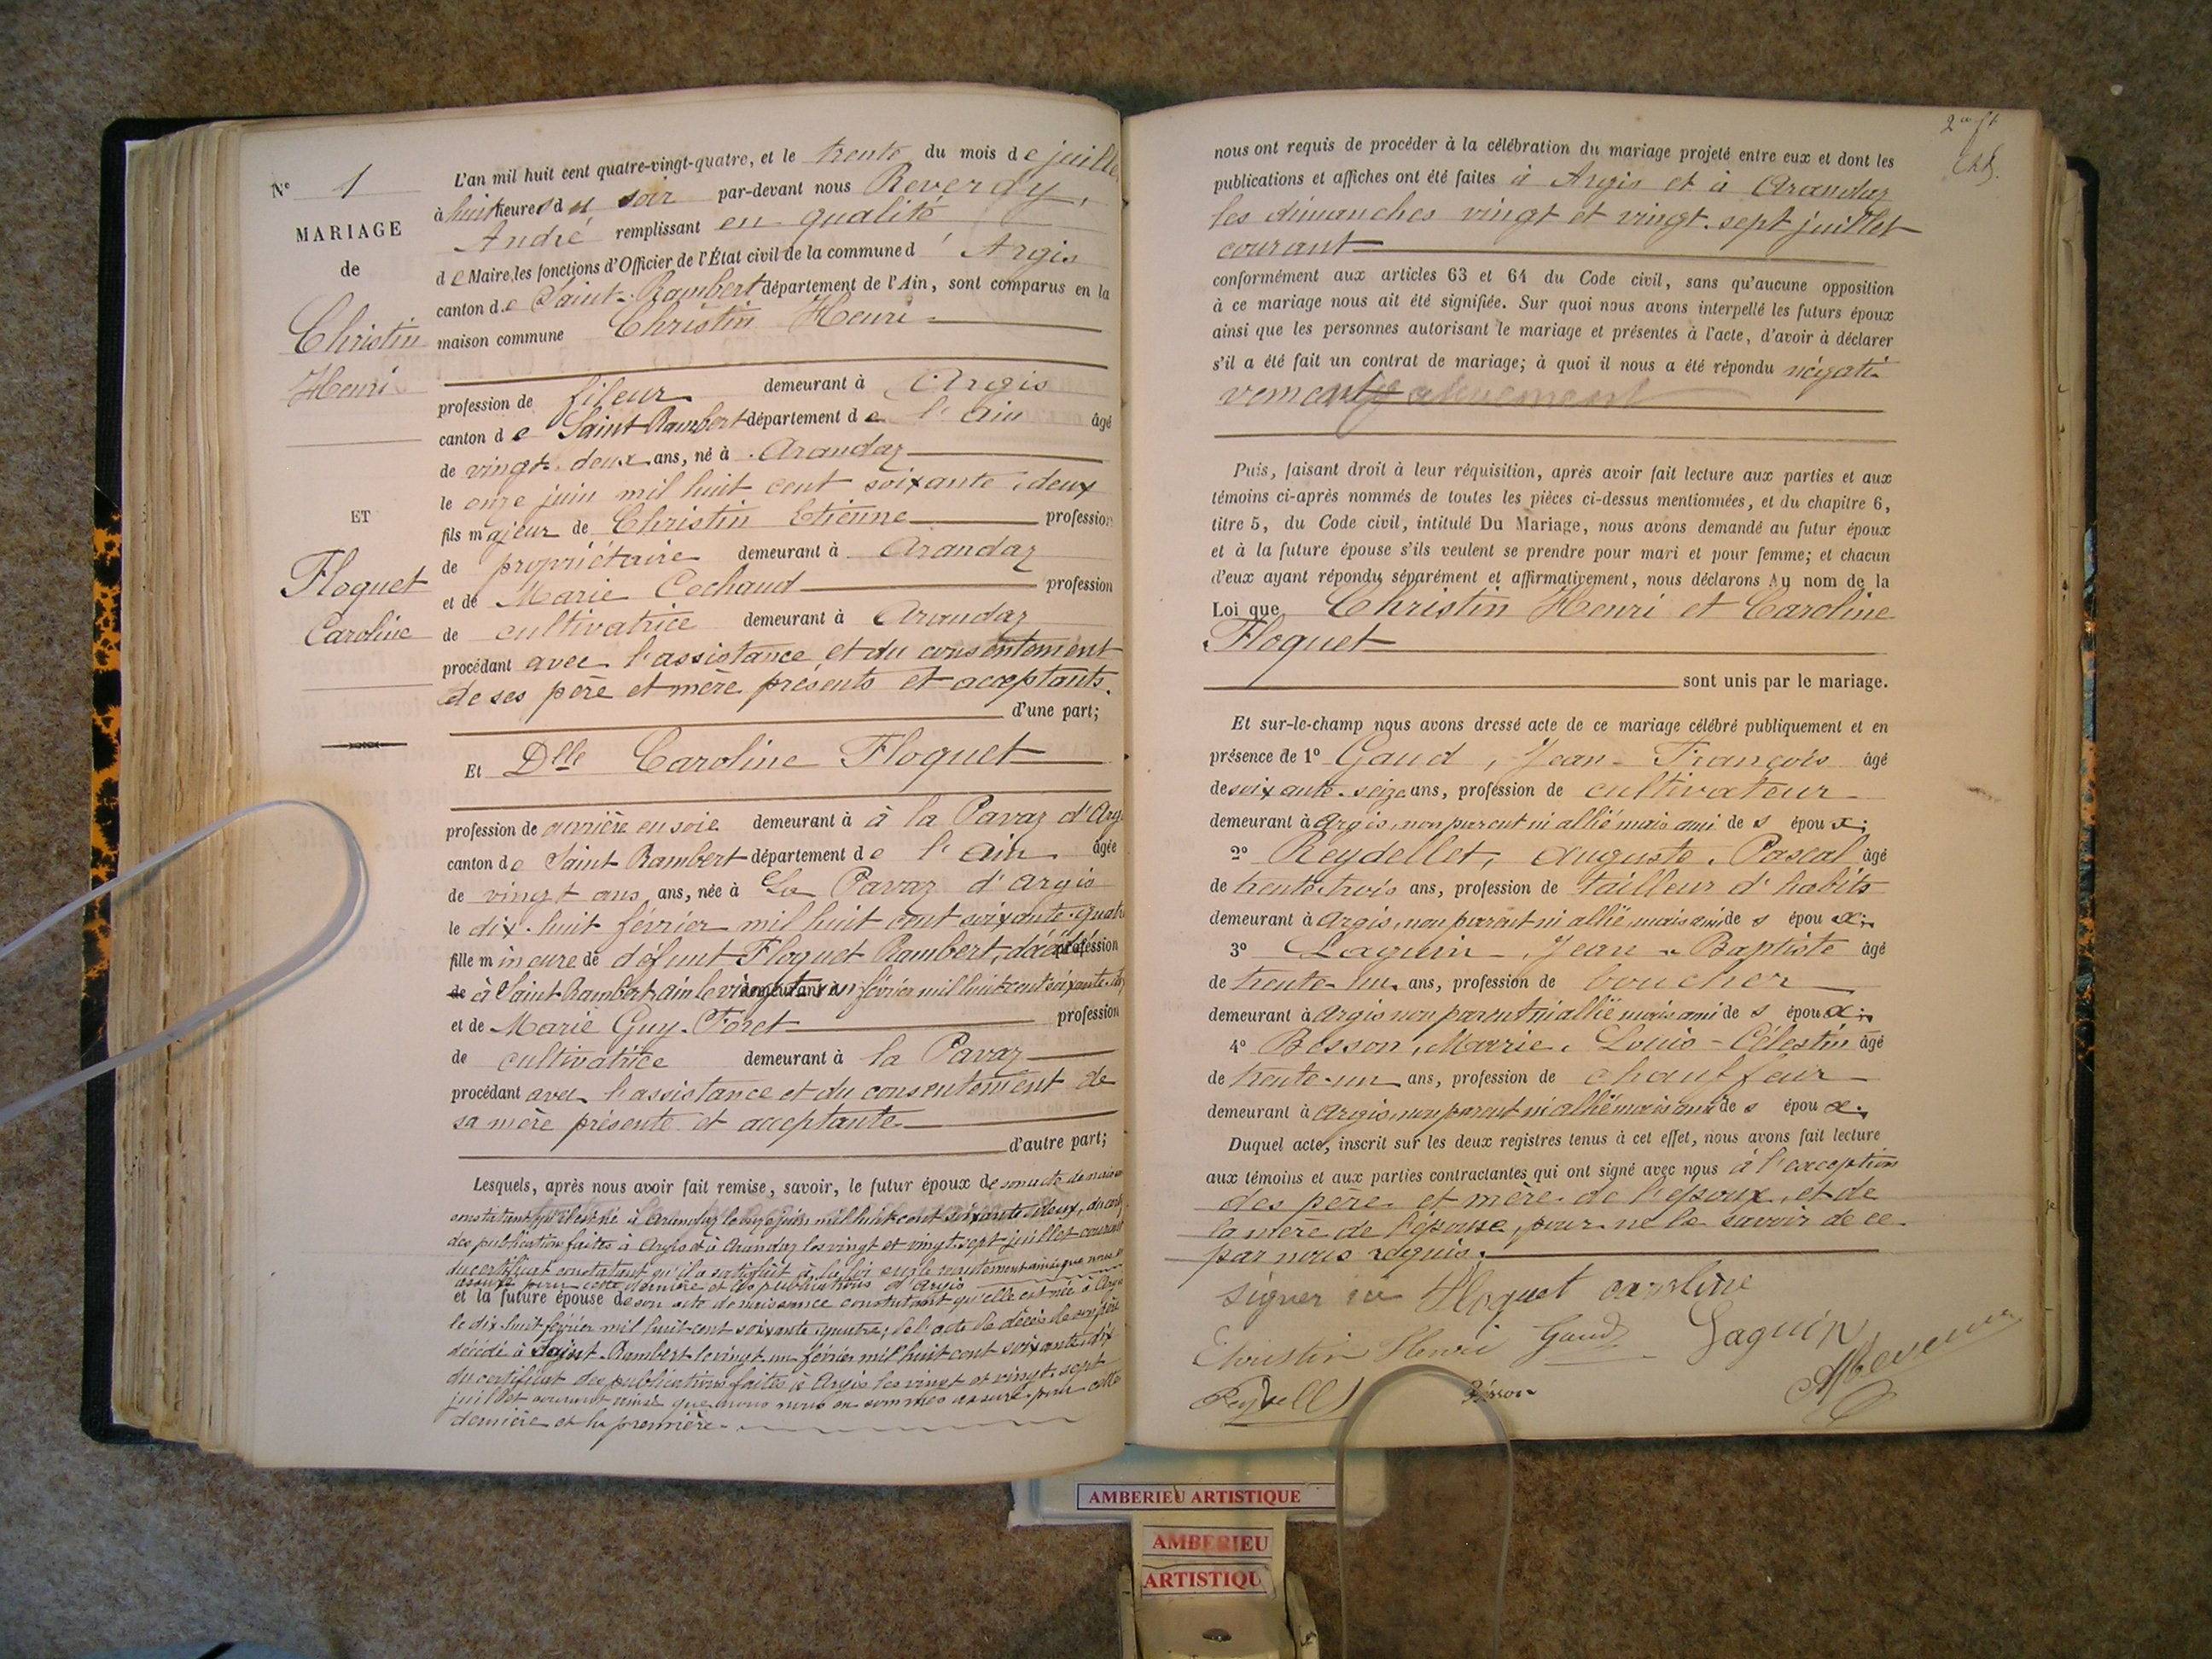 N° 1
MARIAGE
de
Christin
Henri
ET
Floquet
Caroline
L'an mil huit cent quatre-vingt-quatre, et le trente du mois de juillet
à huit heures du soir par-devant nous Reverdy,
André remplissant en qualité
de Maire, les fonctions d'Officier de l'État civil de la commune d'Argis
canton de Saint-Rambert département de l'Ain, sont comparus en la
maison commune Christin Henri
profession de fileur demeurant à Argis
canton de Saint Rambert département de l'Ain âgé
de vingt-deux ans, né à Arandaz
le onze juin mil huit cent soixante-deux
fils majeur de Christin Etienne profession
de propriétaire demeurant à Arandaz
et de Marie Cochaud profession
de cultivatrice demeurant à Arandaz
procédant avec l'assistance et du consentement
de ses père et mère présents et acceptants.
d'une part;
Et Dlle Caroline Floquet
profession de ouvrière en soie demeurant à à la Pavaz d'Arg
canton de Saint Rambert département de l'Ain âgée
de vingt ans ans, née à La Pavaz d'Argis
le dix-huit février mil huit cent soixante-quatre
fille mineure de défunt Floquet Rambert, décédé profession
de à Saint-Rambert, ain le vingt-un février mil huit cent soixante-dix demeurant à
et de Marie Guy-Foret profession
de cultivatrice demeurant à la Pavaz
procédant avec l'assistance et du consentement de
sa mère présente et acceptante
d'autre part;
Lesquels, après nous avoir fait remise, savoir, le futur époux de son acte de naissance
constatant qu'il est né à Arandaz le onze juin mil huit cent soixante-deux, du certif
des publications faites à Argis et à Arandaz les vingt et vingt-sept juillet courant
du certificat constatant qu'il a satisfait à la loi sur le recrutement ainsi que nous
assuré pour cette dernière et les publications d'Argis
et la future épouse de son acte de naissance constatant qu'elle est née à Argis
le dix-huit février mil huit cent soixante-quatre; de l'acte de décès de son père
décédé à Saint-Rambert le vingt-un février mil huit cent soixante-dix
du certificat des publications faites à Argis les vingt et vingt-sept
juillet courant ainsi que nous nous en sommes assuré pour cette
dernière et la première
2e ft
nous ont requis de procéder à la célébration du mariage projeté entre eux et dont les
publications et affiches ont été faites à Argis et à Arandaz
les dimanches vingt et vingt-sept juillet
courant
conformément aux articles 63 et 64 du Code civil, sans qu'aucune opposition
à ce mariage nous ait été signifiée. Sur quoi nous avons interpellé les futurs époux
ainsi que les personnes autorisant le mariage et présentes à l'acte, d'avoir à déclarer
s'il a été fait un contrat de mariage; à quoi il nous a été répondu négati-
vement
Puis, faisant droit à leur réquisition, après avoir fait lecture aux parties et aux
témoins ci-après nommés de toutes les pièces ci-dessus mentionnées, et du chapitre 6,
titre 5, du Code civil, intitulé Du Mariage, nous avons demandé au futur époux
et à la future épouse s'ils veulent se prendre pour mari et pour femme; et chacun
d'eux ayant répondu séparément et affirmativement, nous déclarons Au nom de la
Loi que Christin Henri et Caroline
Floquet
sont unis par le mariage.
Et sur-le-champ nous avons dressé acte de ce mariage célébré publiquement et en
présence de 1° Gaud, Jean-François âgé
de soixante-seize ans, profession de cultivateur
demeurant à Argis, non parent ni allié mais ami des époux;
2° Reydellet, Auguste, Pascal âgé
de trente-trois ans, profession de tailleur d'habits
demeurant à Argis, non parent ni allié mais ami des époux;
3° Laguin, Jean-Baptiste âgé
de trente-un ans, profession de boucher
demeurant à Argis non parent ni allié mais ami des époux;
4° Besson, Marie, Louis-Célestin âgé
de trente-un ans, profession de chauffeur
demeurant à Argis, non parent ni allié mais ami des époux.
Duquel acte, inscrit sur les deux registres tenus à cet effet, nous avons fait lecture
aux témoins et aux parties contractantes qui ont signé avec nous à l'exception
des père et mère de l'époux, et de
la mère de l'épouse, pour ne le savoir de ce
par nous requis.
Signer Floquet caroline
Christin Henri Gaud Laguin
Reydellet Besson AReverdy
AMBERIEU ARTISTIQUE
AMBERIEU
ARTISTIQU